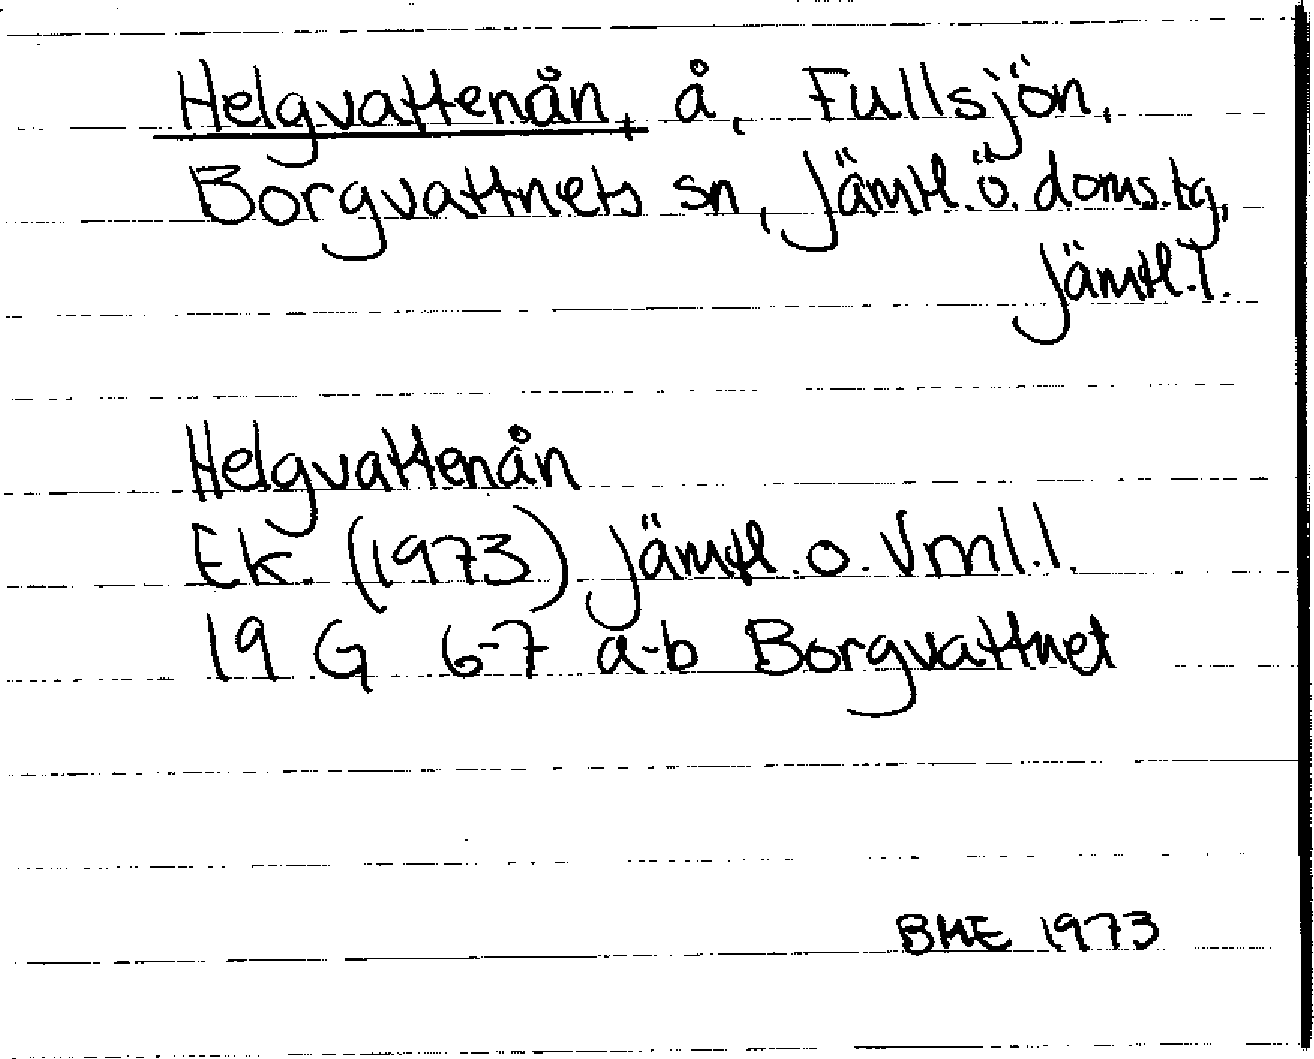 Helgvattenån, å, Fullsjön,
Borgvattnets sn, Jämtl. ö. doms.tg,
Jämtl. l.
Helgvattenån
Ek. (1973) Jämtl. o. Vrnl. l.
19 G 6-7 a-b Borgvattnet
BHE 1973